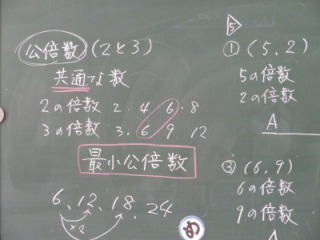 公倍数 (2と3)
共通な数
2の倍数 2. 4 6. 8
3の倍数 3. 6 9 12
最小公倍数
6, 12, 18, 24
×2
め
5
① (5, 2)
5の倍数
2の倍数
A
② (6, 9)
6の倍数
9の倍数